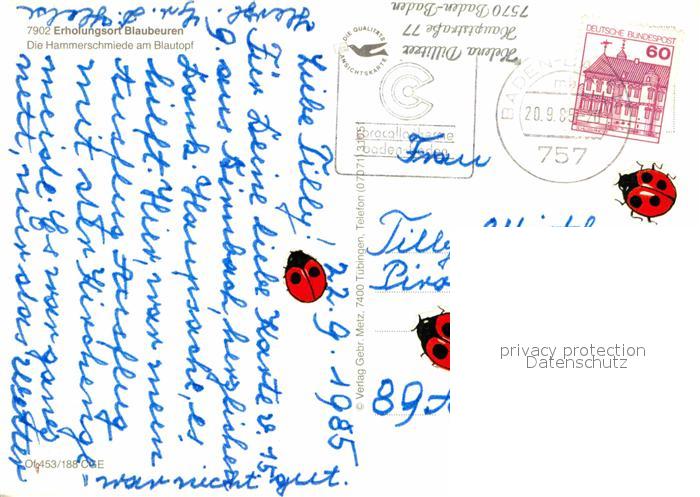 7902 Erholungsort Blaubeuren
Die Hammerschmiede am Blautopf
Liebe Tilly! 22.9.1985
Für Deine liebe Karte v. 15.
9. aus Birnbach, herzlichen
Dank. Hauptsache, es
hilft. Hier war mein
Ausflug Ausflug
mit der Kirchenge
meinde. Es war ganz
nett, nur das Wetter
war nicht gut.
Herzl.
© Verlag Gebr. Metz, 7400 Tübingen, Telefon (07071)
453/188 CGE
DIE QUALITÄTS
ANSICHTSKARTE
caracallatherme
baden-baden
Helena
Hauptstraße 77
7570 Baden-Baden
BADEN-BADEN
20.9.85
757
DEUTSCHE BUNDESPOST
60
Frau
Tilly
89
privacy protection
Datenschutz